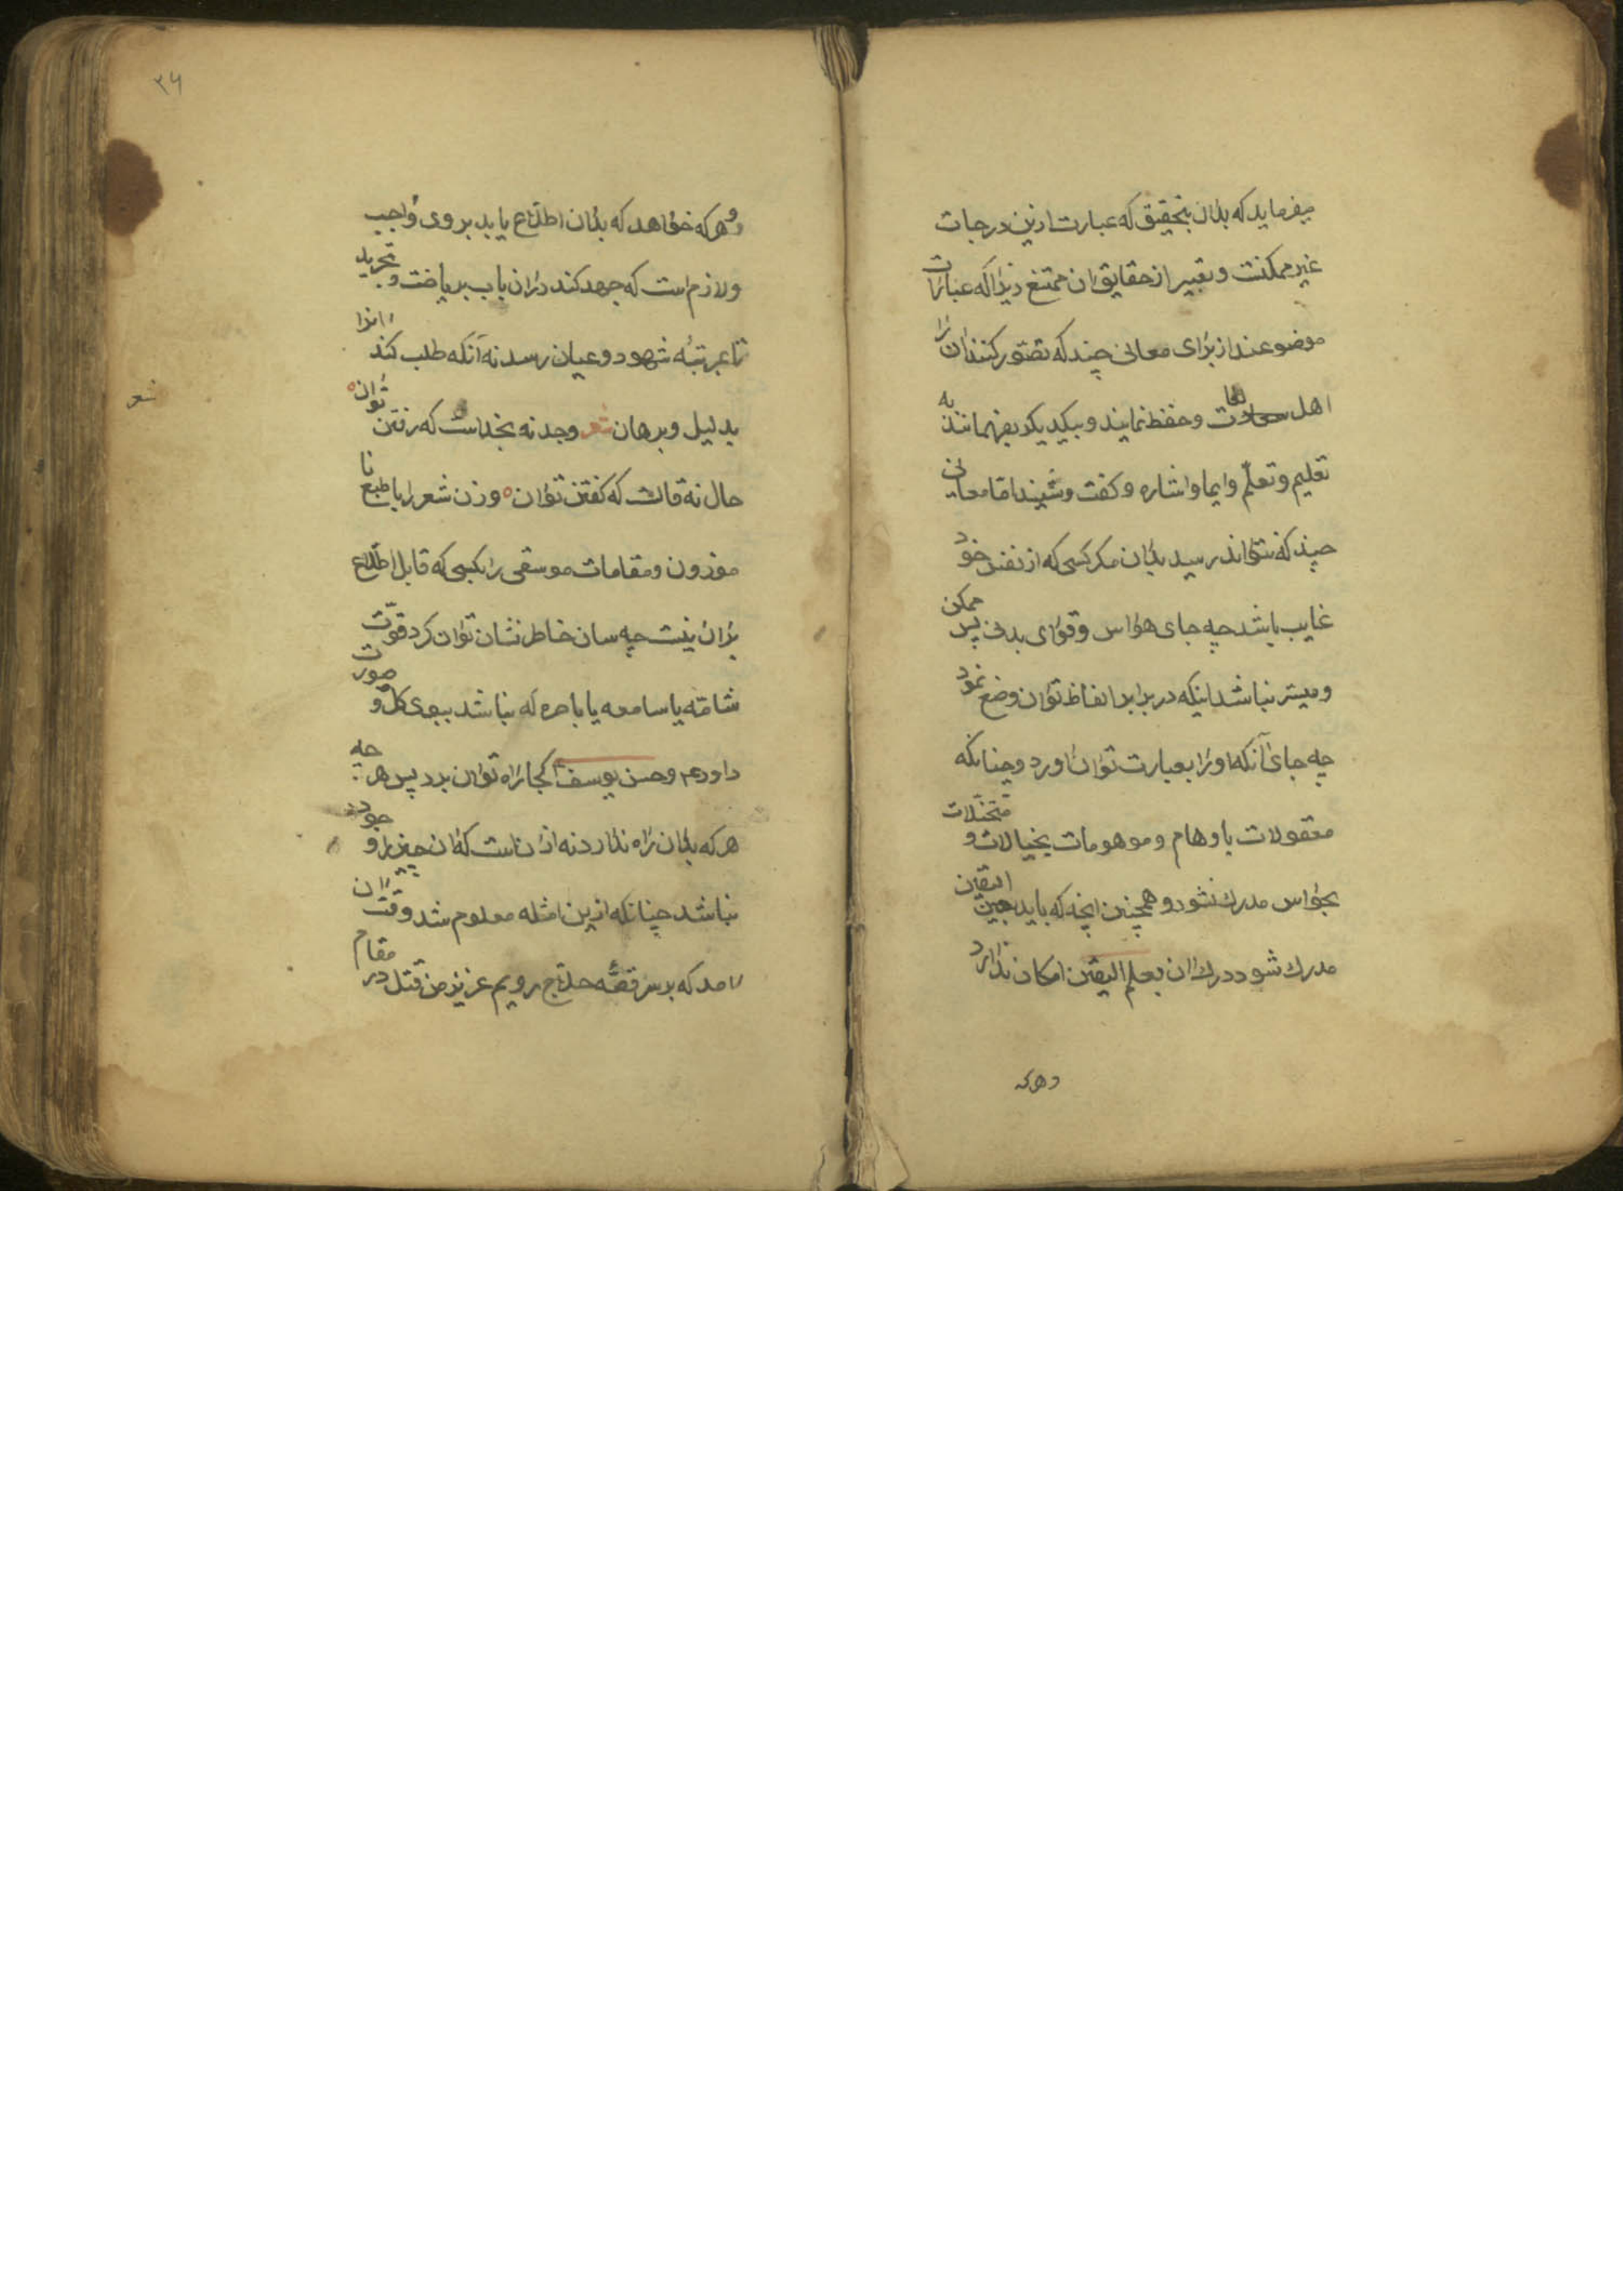 میفرماید که بدان بتحقیق که عبارت ازین درجات
غیر ممکنست و تعبیر از حقایق ان ممتنع زیراکه عبارات
موضوعند از برای معانی چند که تصور کنند ان را
اهل لغات و حفظ نمایند و بیکدیکر بفهمانند به
تعلیم و تعلّم و ایما و اشاره و کفت و شنید امّا معانی
چند که نتواند رسید بدان مکر کسی که از نفس خود
غایب باشد چه جای هواس و قوای بدنی پس ممکن
و میسّر نباشد اینکه در برابر الفاظ توان وضع نمود
چه جای آنکه او را بعبارت توان اورد و چنانکه
معقولات باوهام و موهومات بخیالات و متخیّلات
بحواس مدرك نشود و همچنین انچه که باید بعین الیقین
مدرك شود درك ان بعلم الیقین امکان ندارد
وهرکه
۲۴
و هرکه خواهد که بدان اطلاع یابد بر وی واجب
و لازم است که جهد کند در ان باب بریاضت و تجرید
تا بمرتبهٔ شهود و عیان رسد نه آنکه طلب کند انرا
بدلیل و برهان شعر وجد نه بخداست که رفتن توان
شعر
حال نه قالست که کفتن توان وزن شعر را با طبع نا
موزون و مقامات موسقی را بکسی که قابل اطلاع
بران نیست چه سان خاطر نشان توان کرد قوّت
شامّه یا سامعه یا باصره که نباشد ببوی کل و صورت
داود ع م و حسن یوسف ع کجا راه توان برد پس هر چه
هرکه بدان راه ندارد نه از ان است که ان چیز را وجود
نباشد چنانکه ازین امثله معلوم شد وقت ان
امد که بر سر قصّهٔ حلاّج رویم عزیز من قتل در مقام